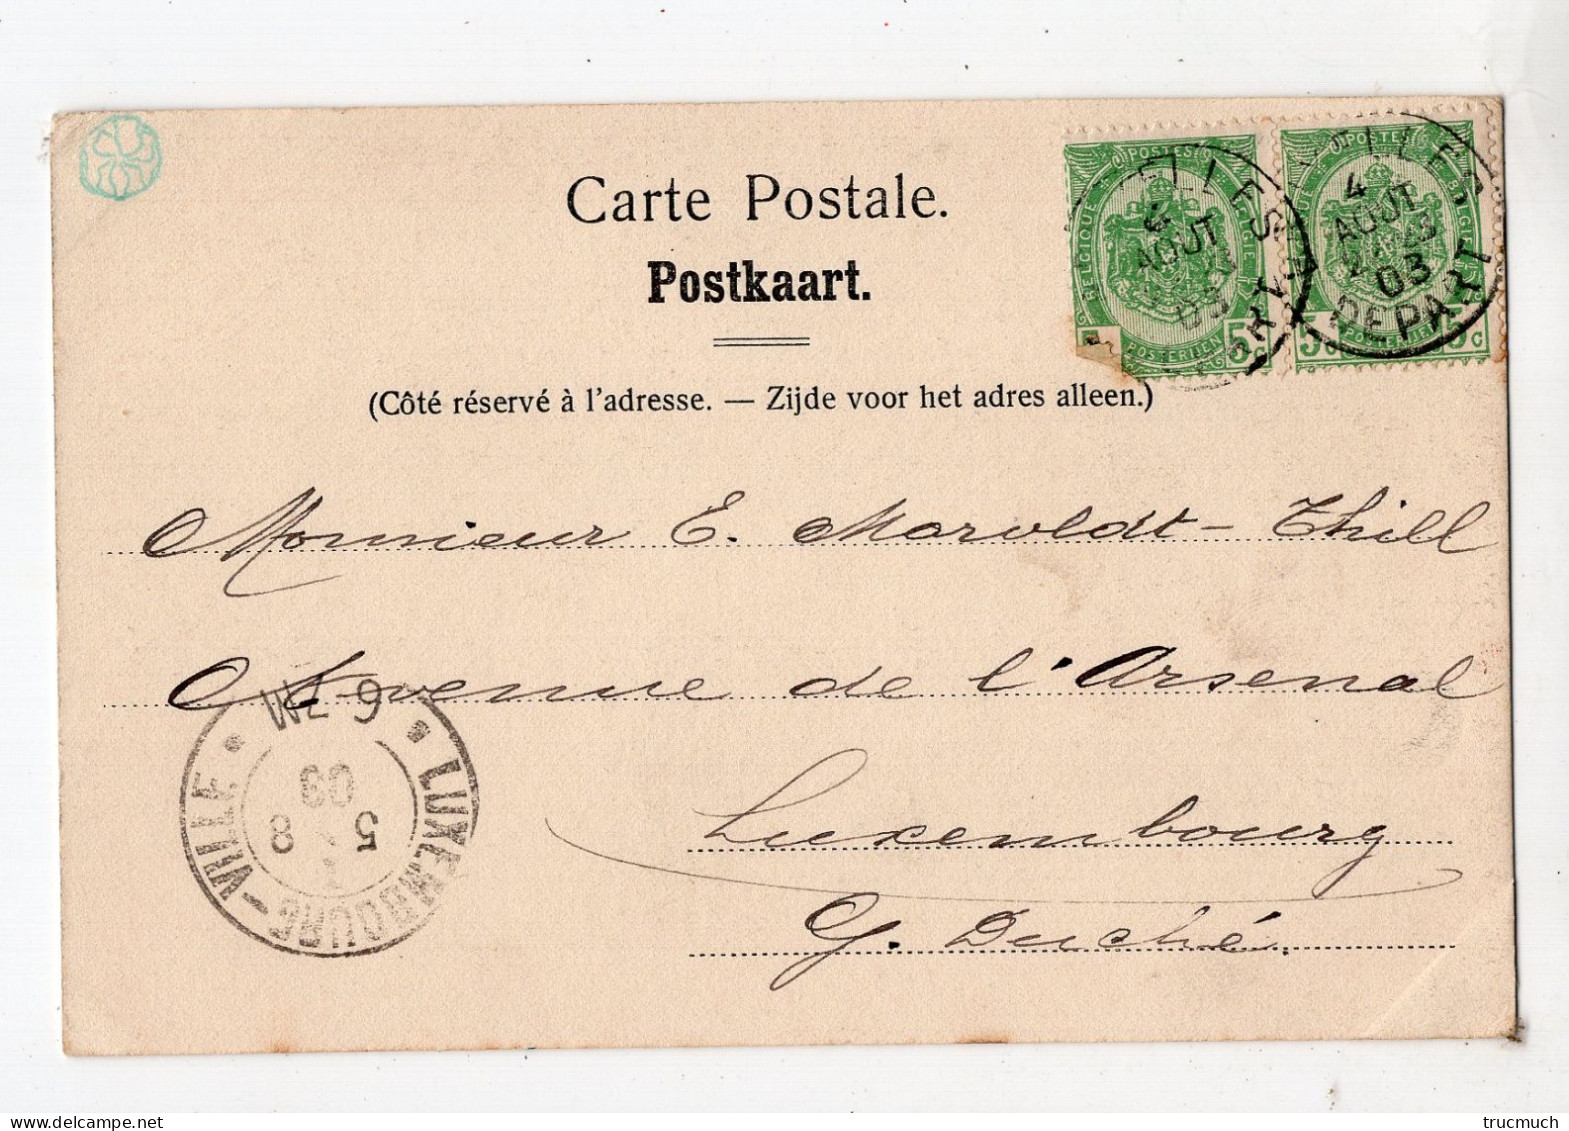 Carte Postale.
Postkaart.
(Côté réservé à l'adresse. — Zijde voor het adres alleen.)
POSTES
BELGIQUE
BELGIË
POSTERIJEN
5c
POSTES
BELGIË
POSTERIJEN
5c 5c
4
AOUT
03
DEPART
AOUT
03
Monsieur E. Maroldt-Thill
Avenue de l'Arsenal
Luxembourg
G. Duché.
LUXEMBOURG-VILLE
6-7M
5 8
03
trucmuch